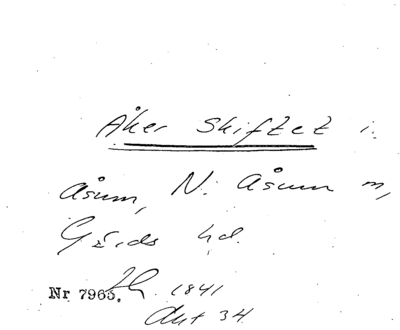 Åker Skiftet i
Åsum, N. Åsum m,
Gärds hd.
Nr 7965. 1841
Akt 34